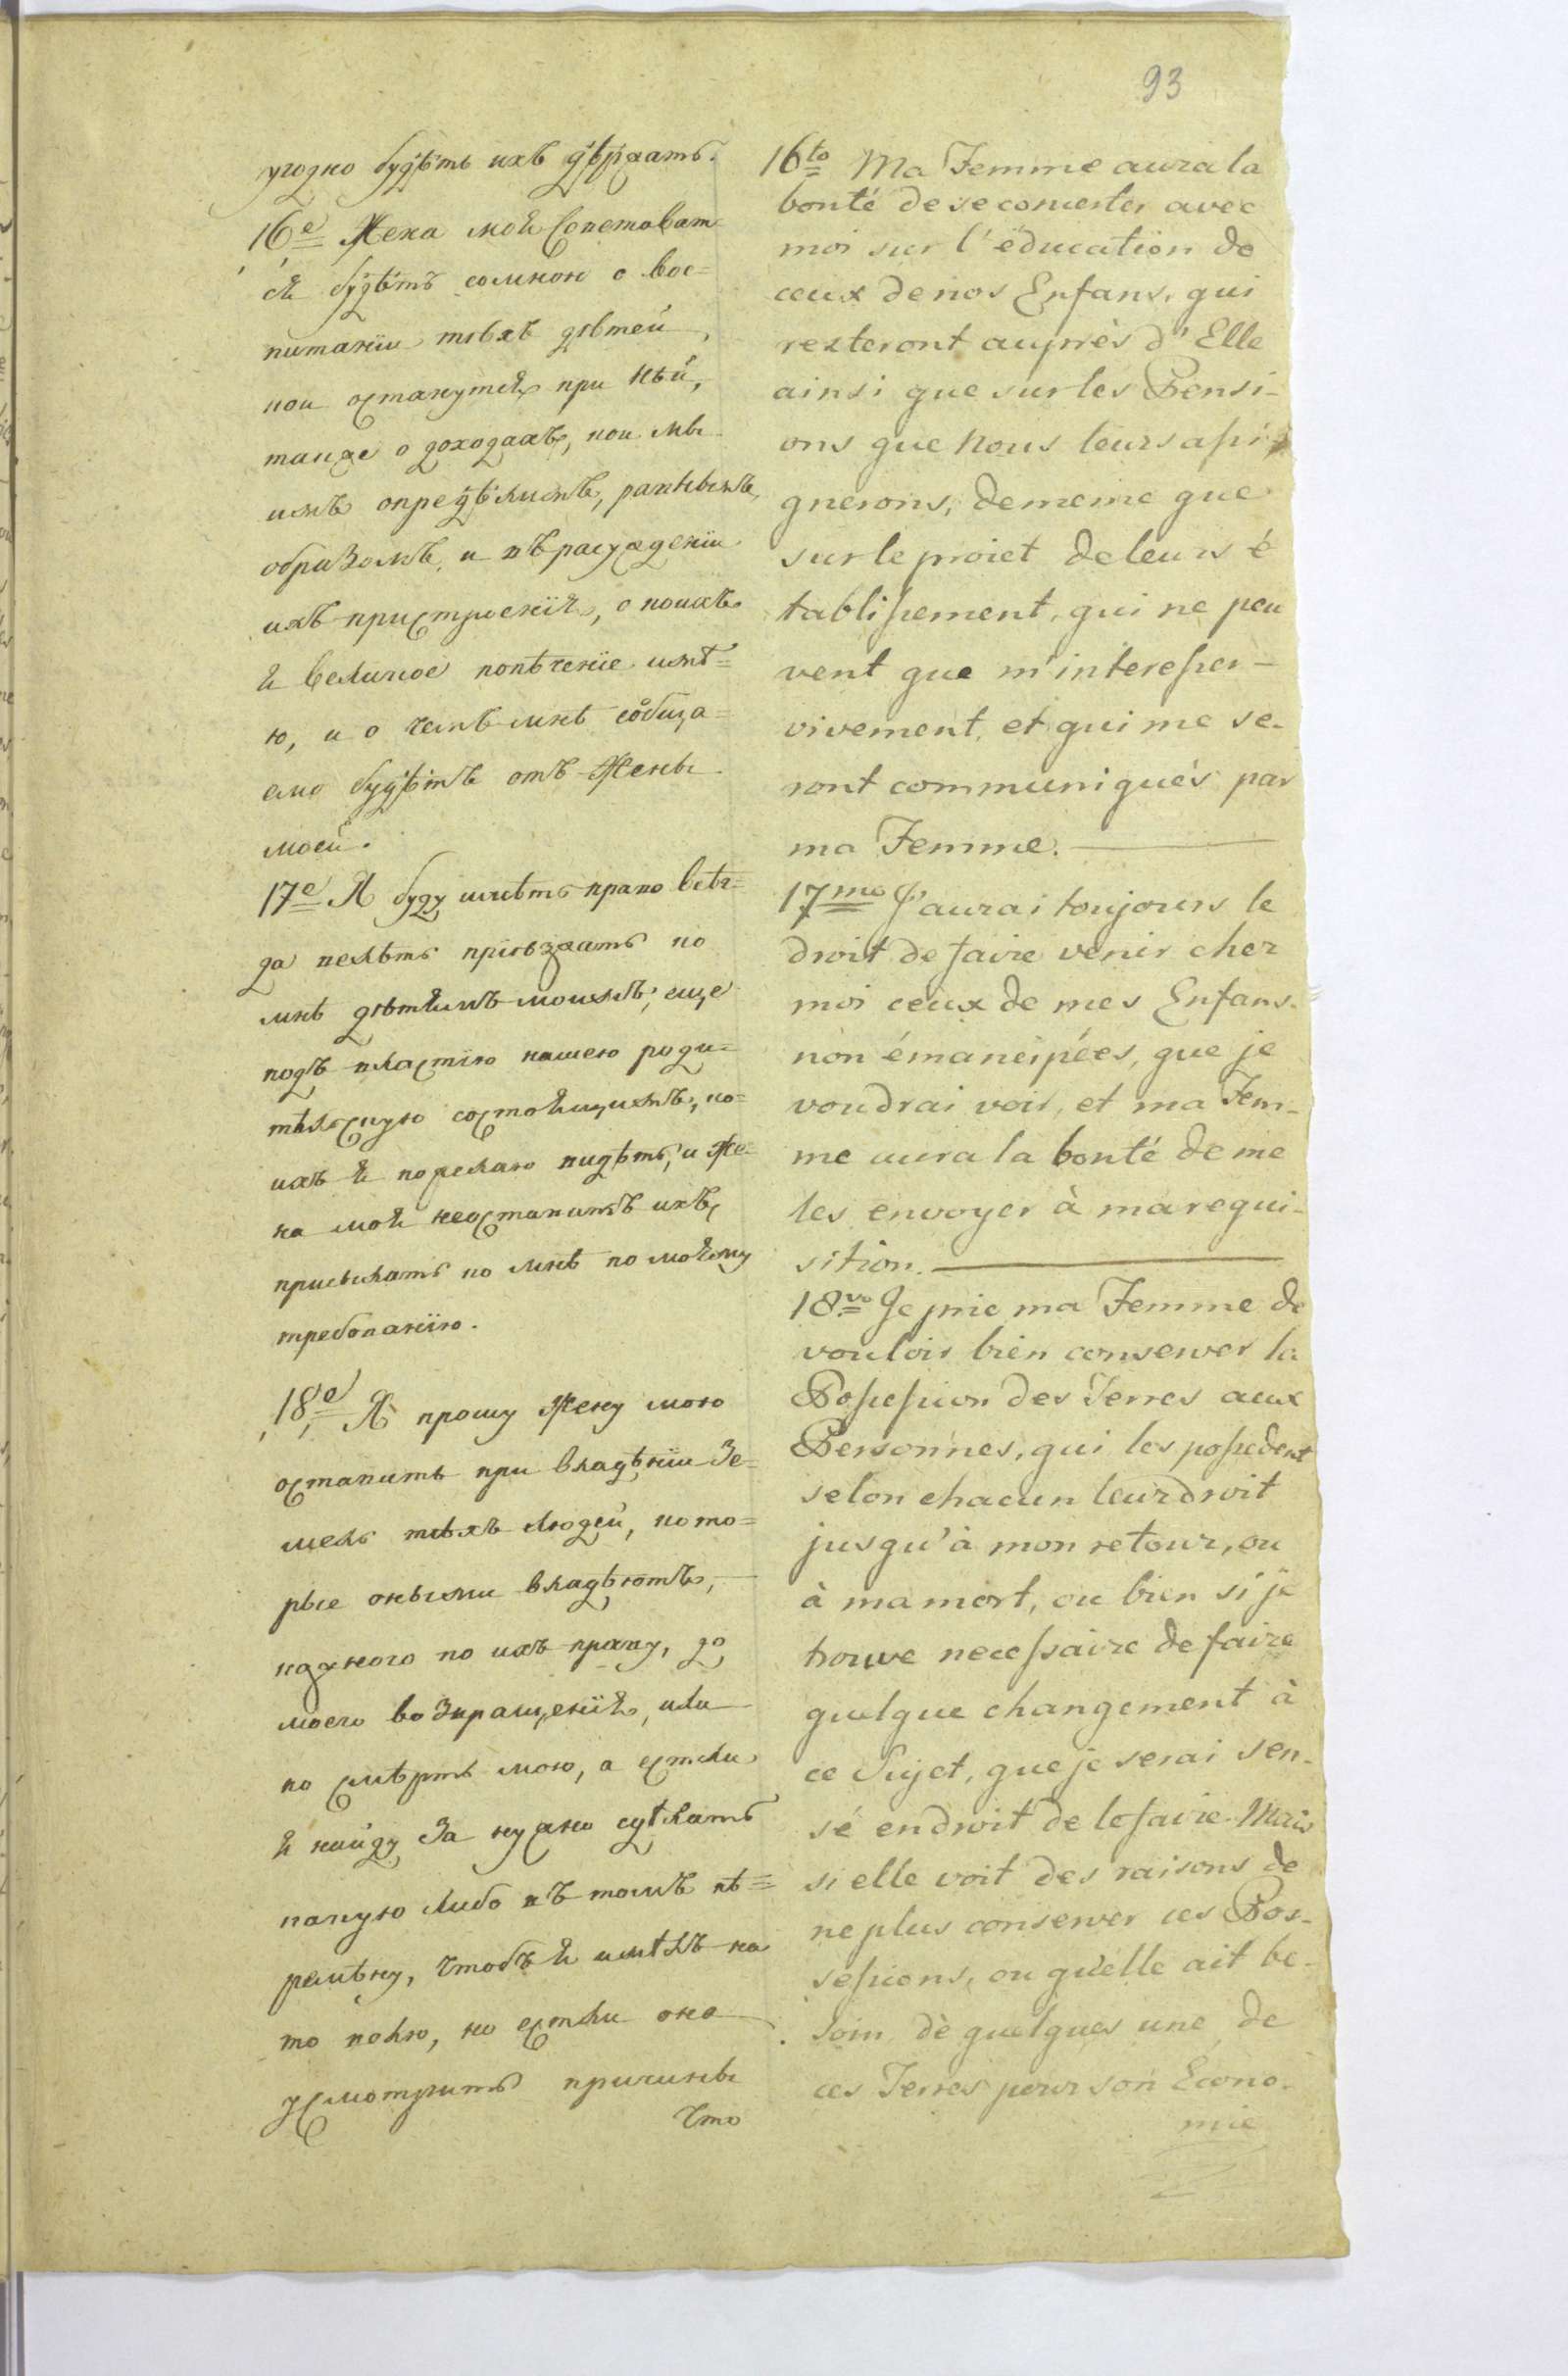 93
угодно будѣтъ ихъ дѣржать.
16е Жена моя Советоват
ся будѣтъ сомною о вос=
питанїи тѣхъ дѣтей,
кои останутся при ней,
также о доходахъ, кои мы
имъ опредѣлимъ, равнымъ
образомъ, и въ расужденїи
ихъ пристроенїя, о коихъ
я великое попѣченїе имѣ=
ю, и о чемъ мнѣ собща=
емо будѣтъ отъ Жены
моей.
17е Я буду имѣть право всѣг=
да велѣть прїѣзжать ко
мнѣ дѣтямъ моимъ, еще
подъ властїю нашею роди=
тѣльскую состоящимъ, ко=
ихъ я пожелаю видѣть, и Же=
на моя неоставитъ ихъ
присылать ко мнѣ по моѣму
требованїю.
18е Я прошу Жену мою
оставить при владѣнїи Зе=
мель тѣхъ людей, кото=
рые оными владѣютъ,
каждного по ихъ праву, до
моего возвращенїя, или
по смѣрть мою, а естли
я найду За нужно сдѣлать
какую либо въ томъ пѣ=
ремѣну, чтобъ я имѣлъ на
то волю, но естли она
усмотритъ причины
что
16to Ma Femme aura la
bonté de se concerter avec
moi sur l'éducation de
ceux de nos Enfans, qui
resteront auprès d'Elle
ainsi que sur les Pensi-
ons que nous leurs assi-
gnerons, de meme que
sur le proiet de leurs é
tablissement, qui ne peu
vent que m'interesser-
vivement, et qui me se-
ront communiqués par
ma Femme.
17me J'aurai toujours le
droit de faire venir chez
moi ceux de mes Enfans
non émancipées, que je
voudrai voir, et ma Fem-
me aura la bonté de me
les envoyer à ma requi-
sition.
18vo Je prie ma Femme de
vouloir bien conserver la
Possession des Terres aux
Personnes, qui les possedent
selon chacun leur droit
jusqu'à mon retour, ou
à ma mort, ou bien si je
trouve necessaire de faire
quelque changement à
ce Sujet, que je serai sen-
sé en droit de le faire. Mais
si elle voit des raisons de
ne plus conserver ces Pos-
sessions, ou qu'elle ait be-
soin de quelques une de
ces Terres pour son Écono-
mie